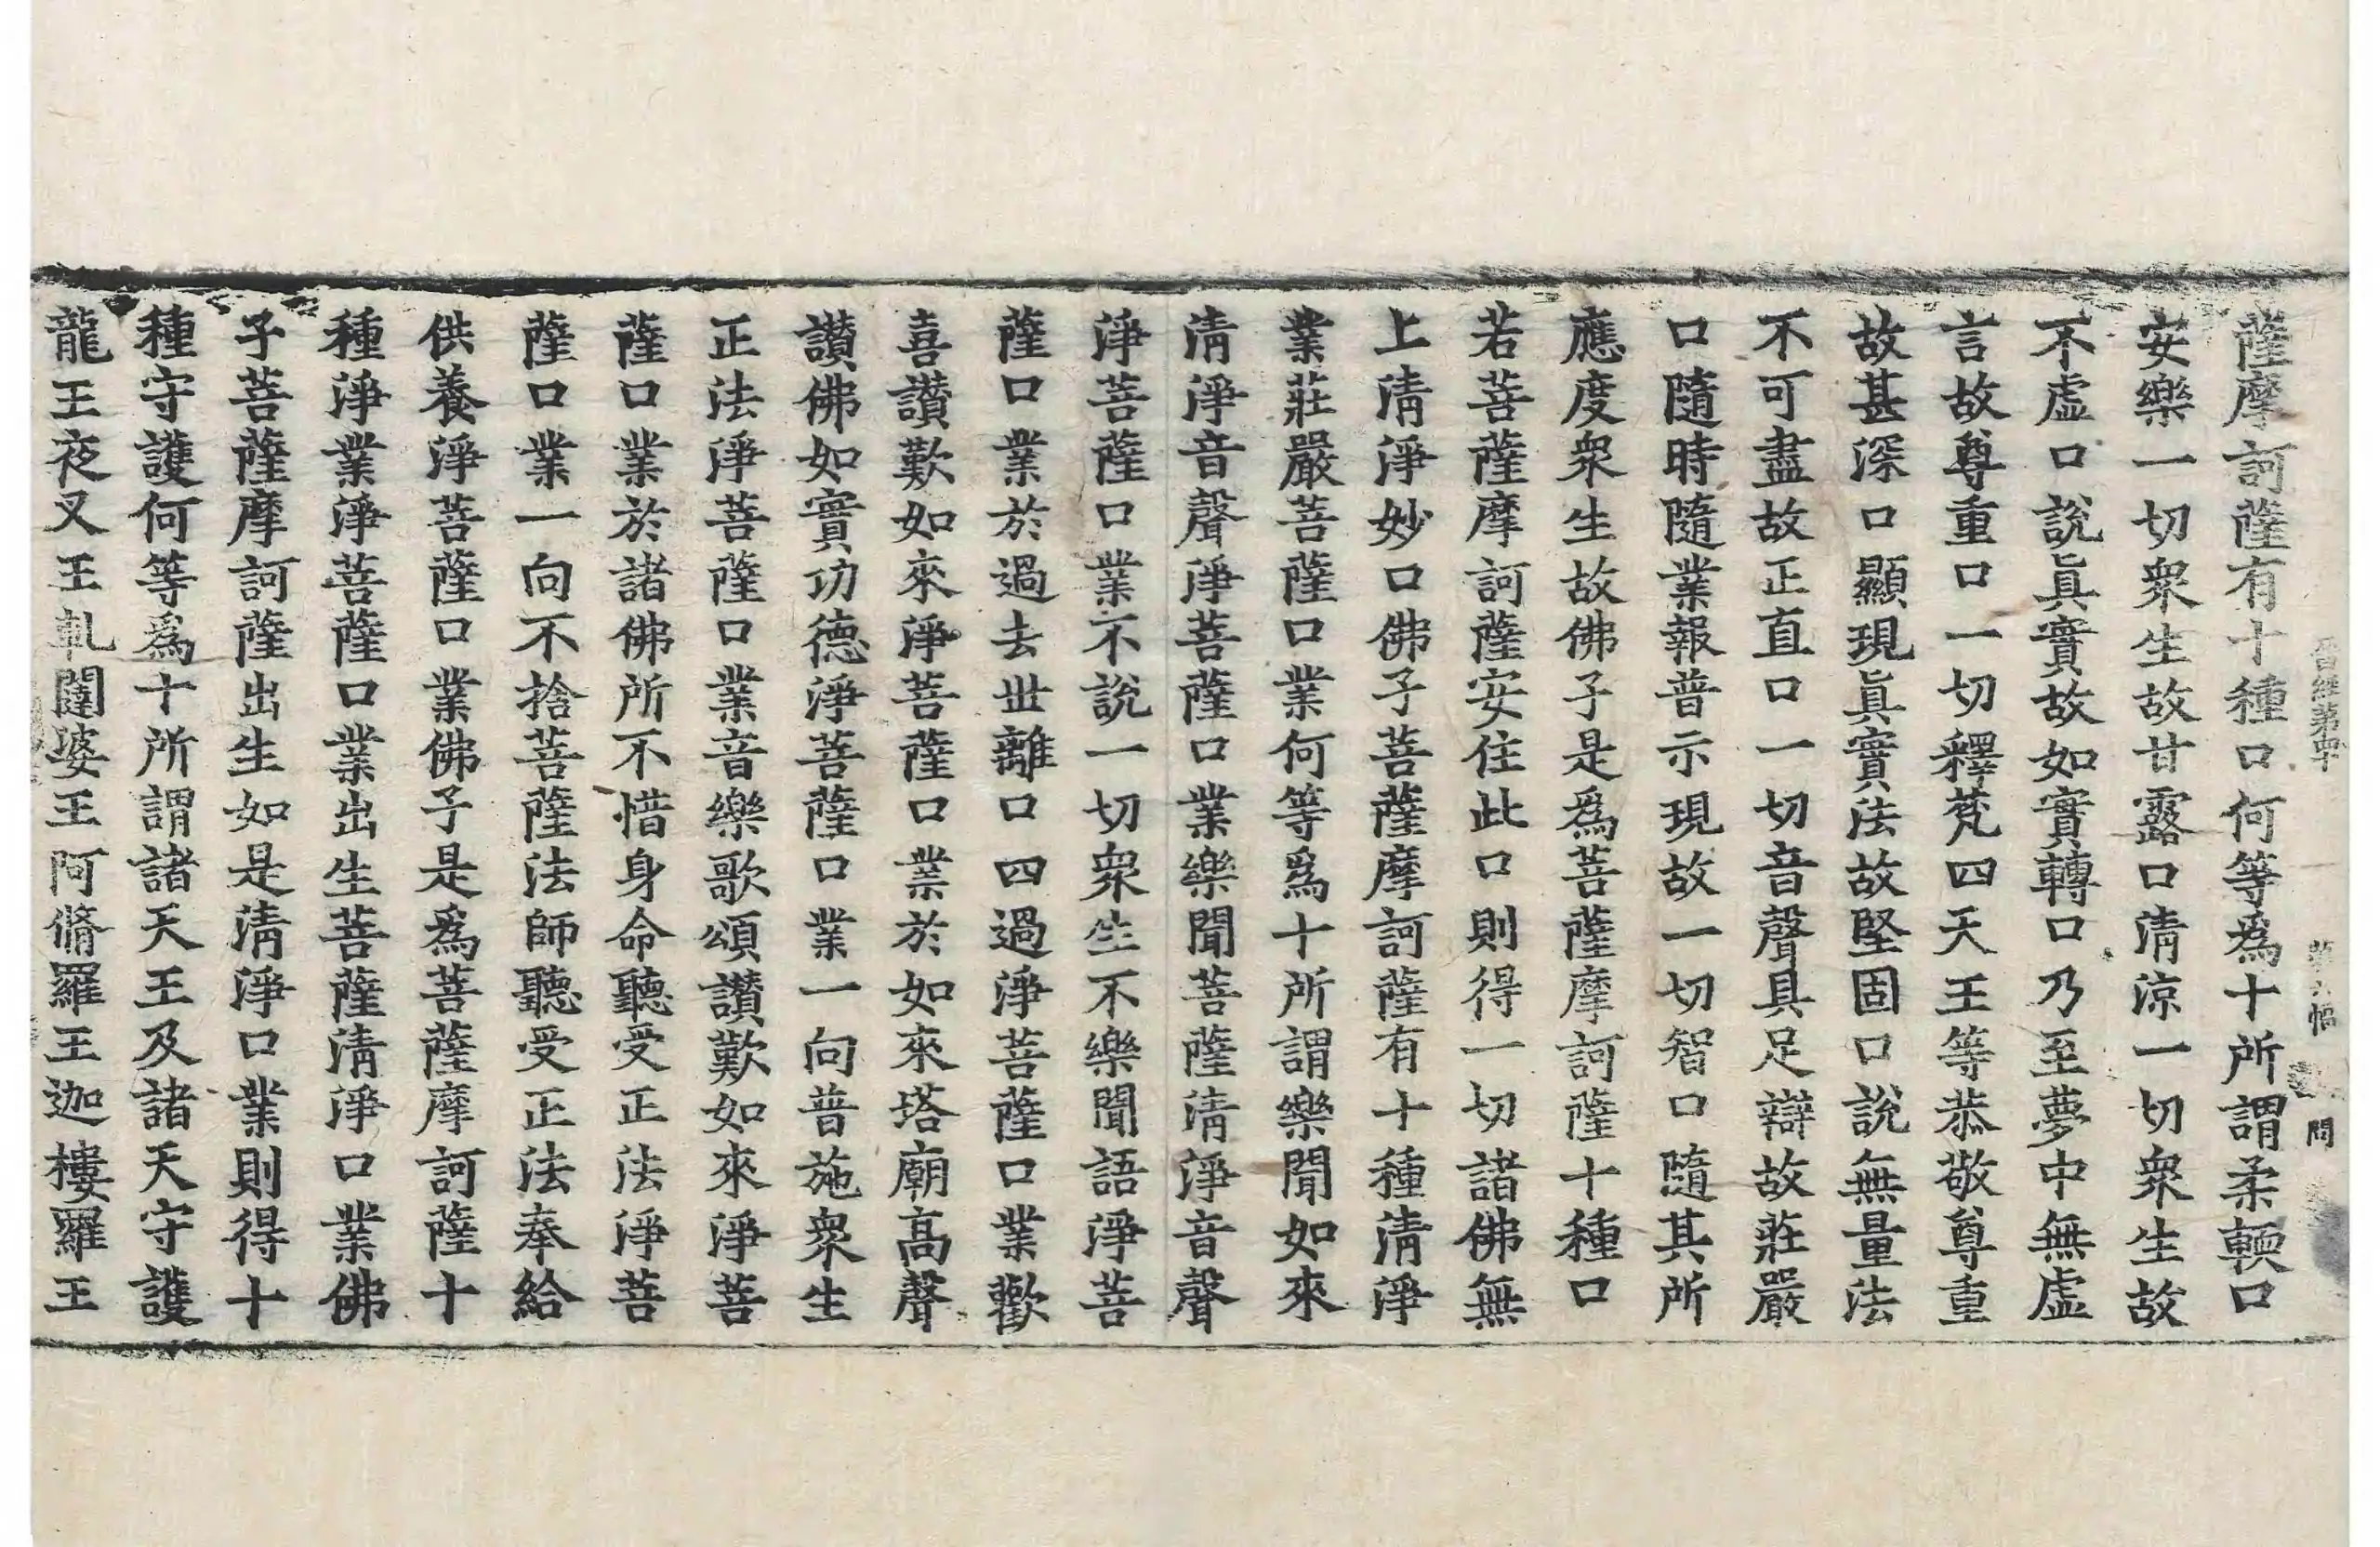 薩摩訶薩有十種口何等爲十所謂柔輭口
安樂一切衆生故甘露口清涼一切衆生故
不虛口說眞實故如實轉口乃至夢中無虛
言故尊重口一切釋梵四天王等恭敬尊重
故甚深口顯現眞實法故堅固口說無量法
不可盡故正直口一切音聲具足辯故莊嚴
口隨時隨業報普示現故一切智口隨其所
應度衆生故佛子是爲菩薩摩訶薩十種口
若菩薩摩訶薩安住此口則得一切諸佛無
上清淨妙口佛子菩薩摩訶薩有十種清淨
業莊嚴菩薩口業何等爲十所謂樂聞如來
清淨音聲淨菩薩口業樂聞菩薩清淨音聲
淨菩薩口業不說一切衆生不樂聞語淨菩
薩口業於過去世離口四過淨菩薩口業歡
喜讃歎如來淨菩薩口業於如來塔廟高聲
讃佛如實功德淨菩薩口業一向普施衆生
正法淨菩薩口業音樂歌頌讃歎如來淨菩
薩口業於諸佛所不惜身命聽受正法淨菩
薩口業一向不捨菩薩法師聽受正法奉給
供養淨菩薩口業佛子是爲菩薩摩訶薩十
種淨業淨菩薩口業出生菩薩清淨口業佛
子菩薩摩訶薩出生如是清淨口業則得十
種守護何等爲十所謂諸天王及諸天守護
龍王夜叉王乹闥婆王阿脩羅王迦樓羅王